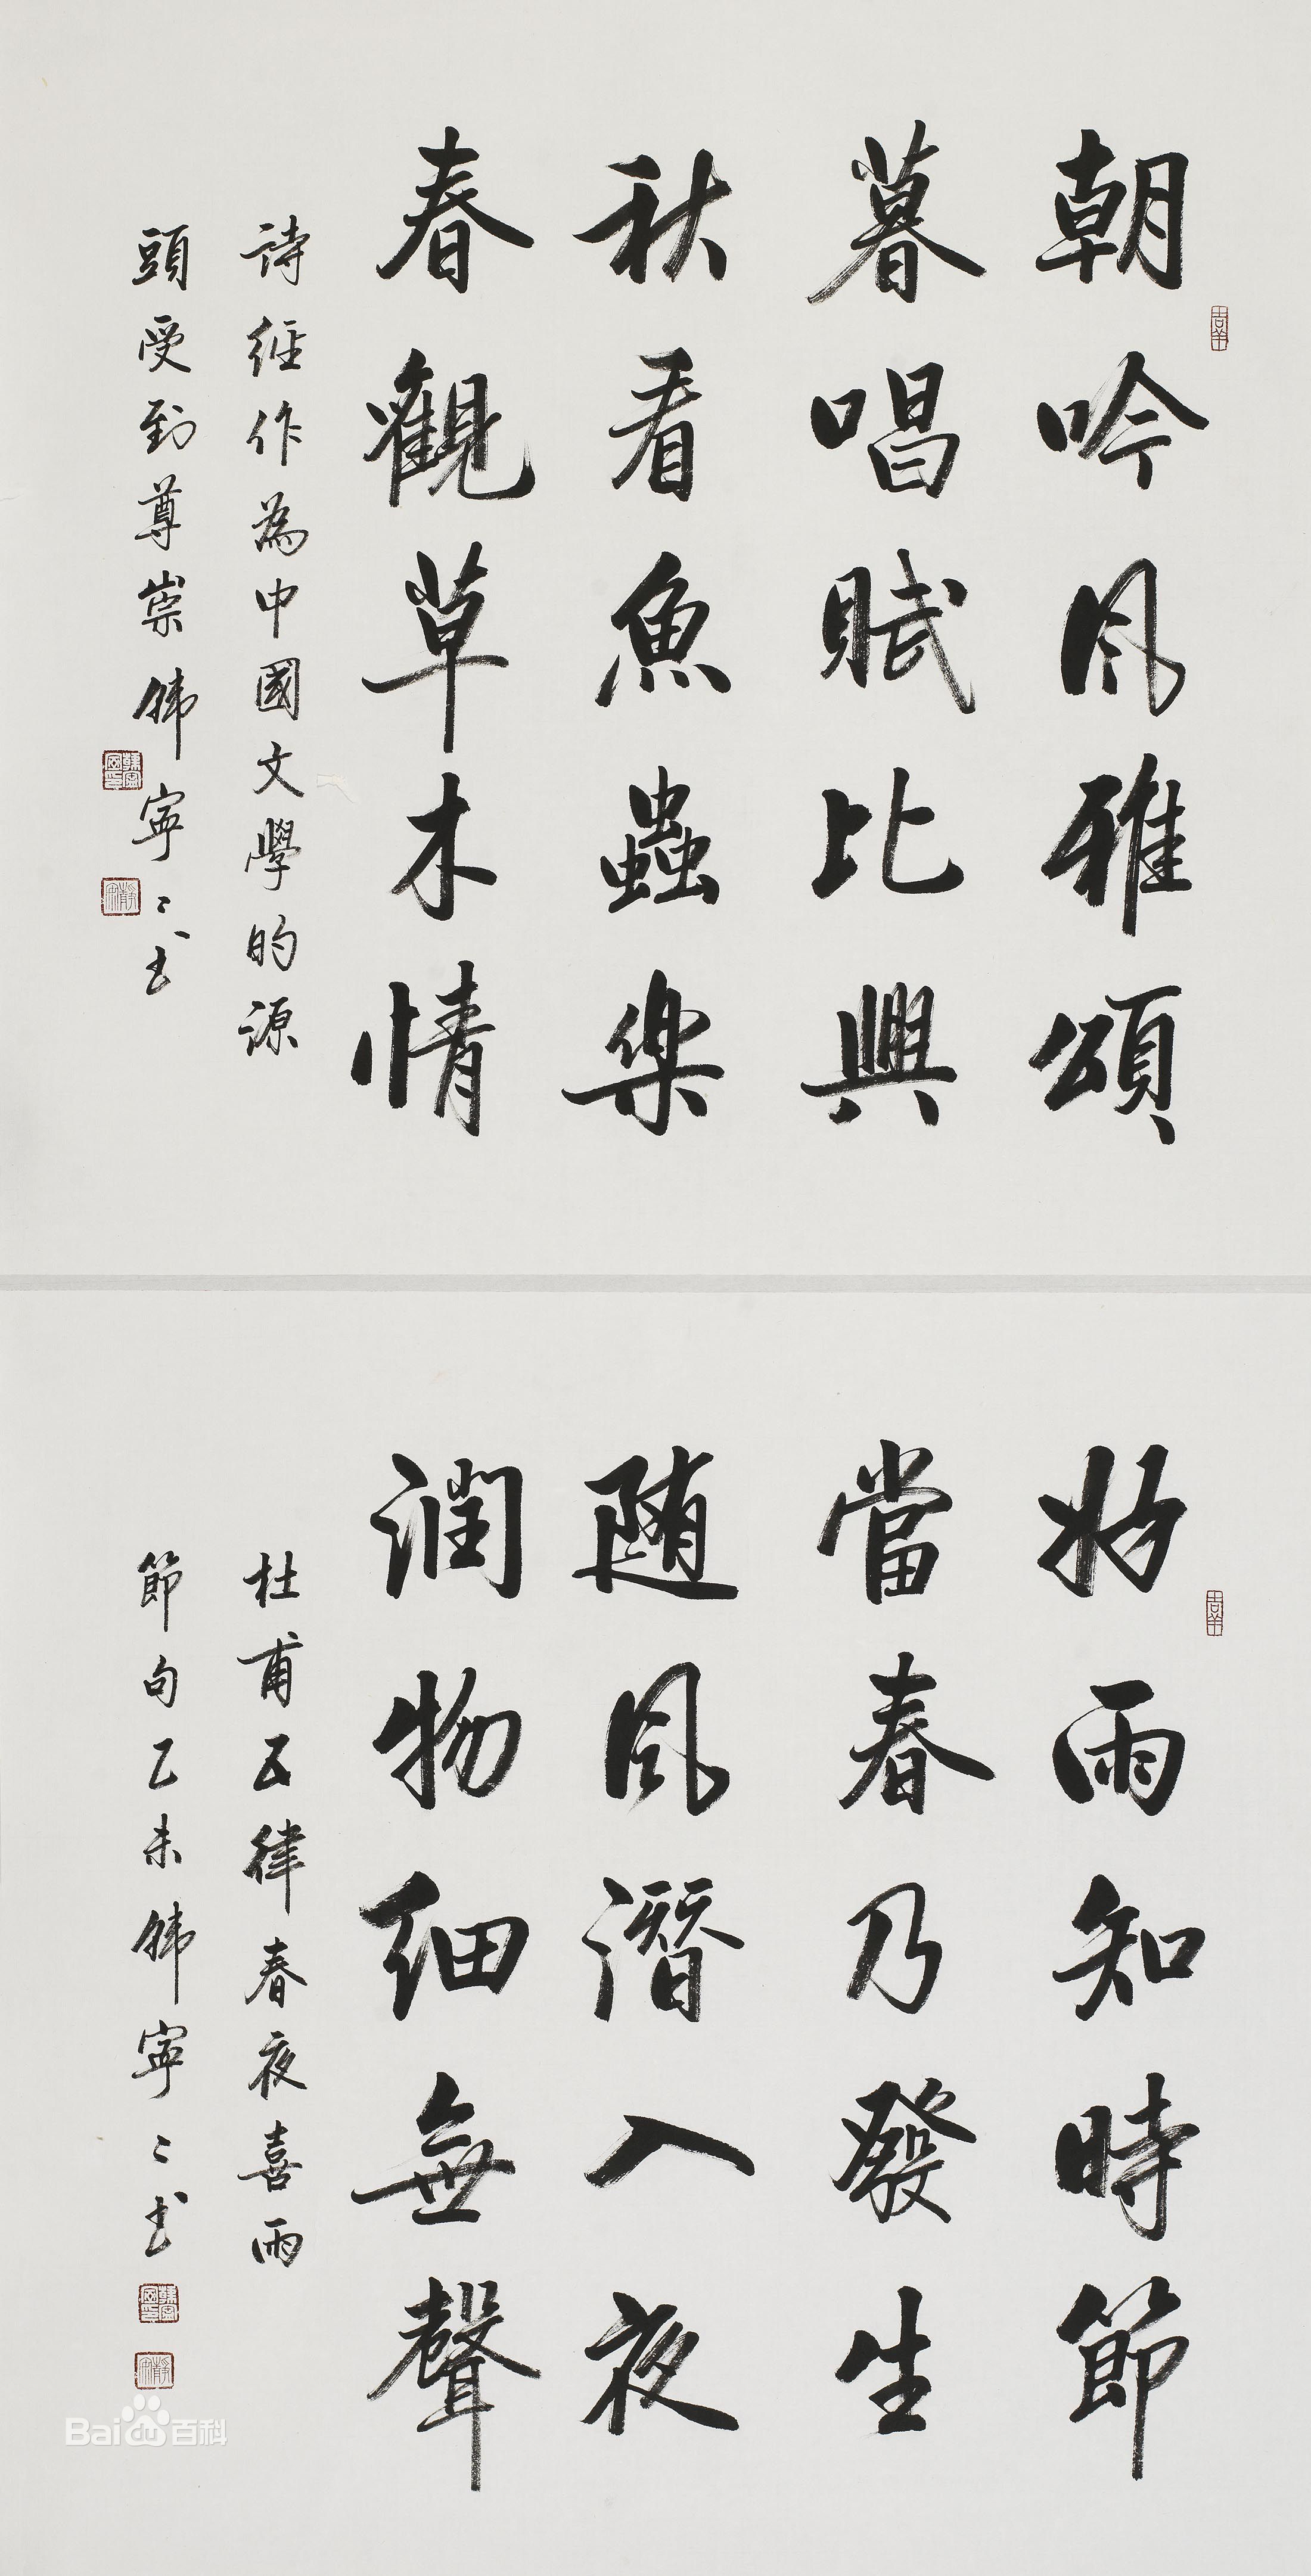 朝吟风雅頌
暮唱賦比興
秋看魚蟲樂
春觀草木情
詩經作為中國文學的源
頭受到尊崇韩寧寧书
吉羊
好雨知時節
當春乃發生
随风潛入夜
潤物細無聲
杜甫五律春夜喜雨
節句乙未韩寧寧书
吉羊
Baidu百科